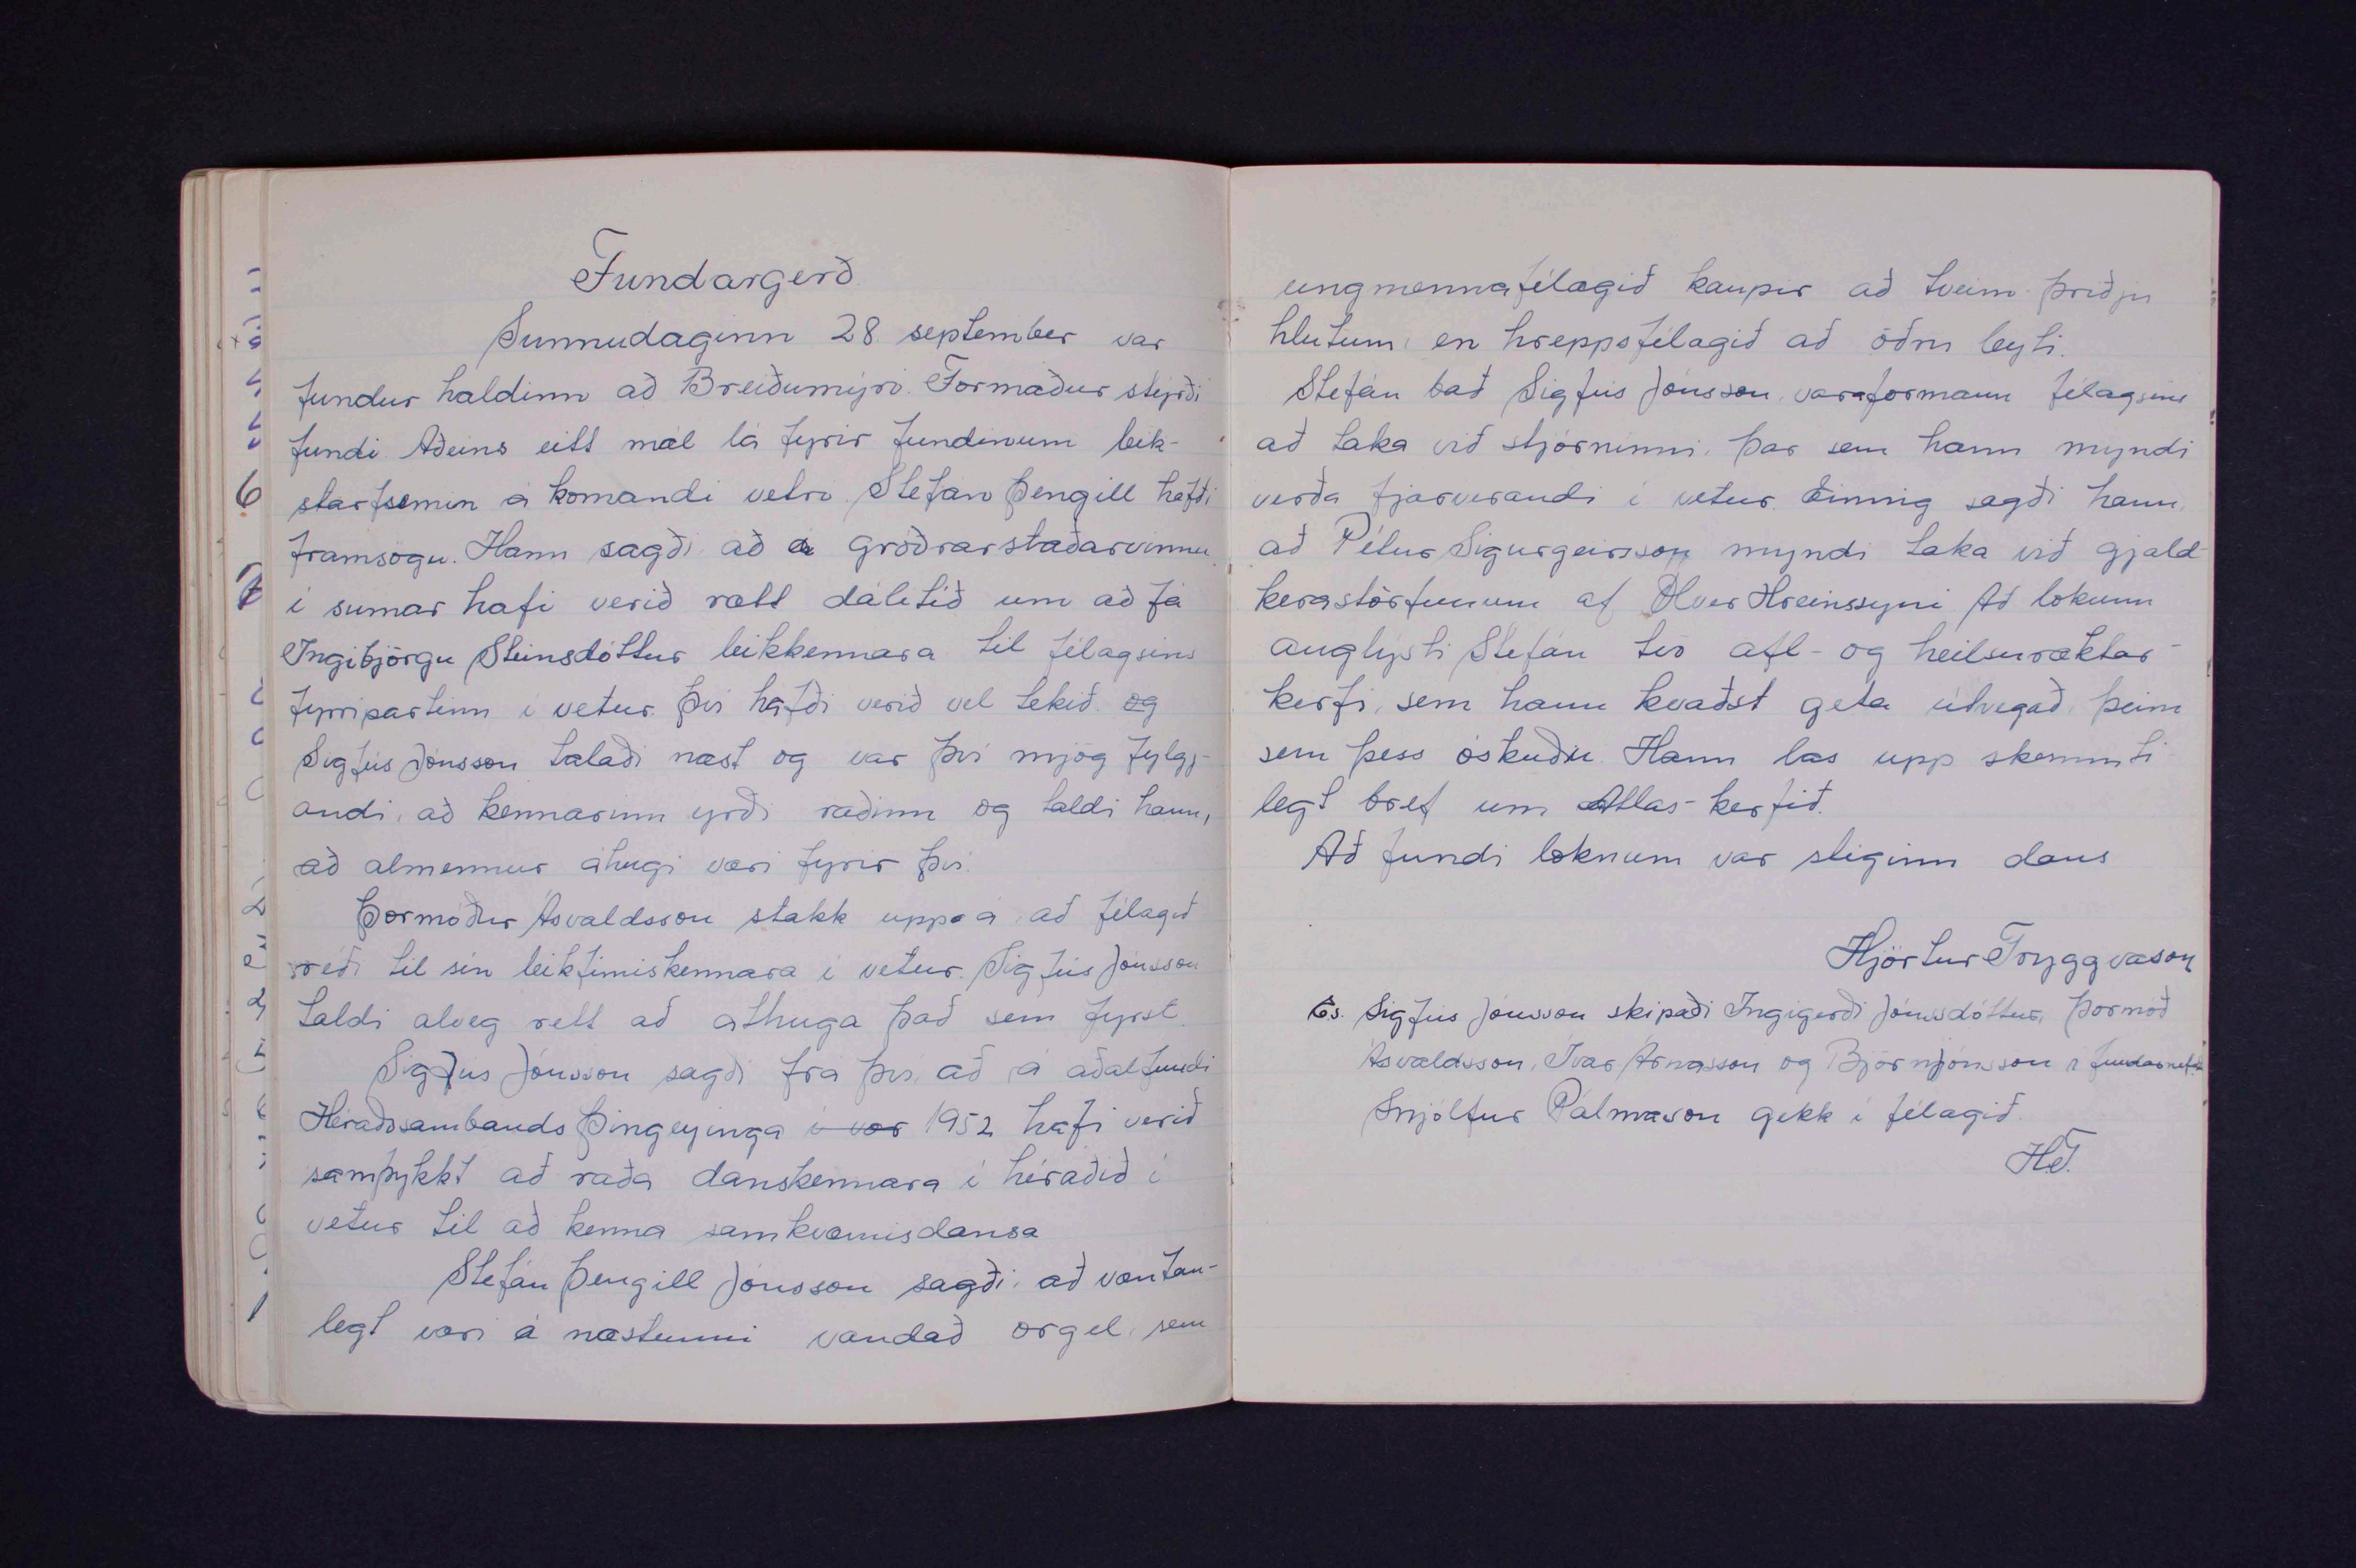 Fundargerð
Sunnudaginn 28. september var
fundur haldinn að Breiðumýri. Formaður stýrði
fundi. Aðeins eitt mál lá fyrir fundinum leik-
starfsemin á komandi vetri. Stefán Þengill hafði
framsögu. Hann sagði, að á gróðrarstaðarvinnu
í sumar hafi verið rætt dálítið um að fá
Ingibjörgu Steinsdóttur leikkennara til félagsins
fyrripartinn í vetur. Því hafði verið vel tekið. og
Sigfús Jónsson talaði næst og var því mjög fylgj-
andi, að kennarinn yrði ráðinn og taldi hann,
að almennur áhugi væri fyrir því.
Þormóður Ásvaldsson stakk uppá á, að félagið
réði til sín leikfimiskennara í vetur. Sigfús Jónsson
taldi alveg rétt að athuga það sem fyrst.
Sigfús Jónsson sagði frá því, að á aðalfundi
Héraðssambands Þingeyinga í vor 1952 hafi verið
samþykkt að ráða danskennara í héraðið í
vetur til að kenna samkvæmisdansa
Stefán Þengill Jónsson sagði, að væntan-
legt væri á næstunni vandað orgel, sem
ungmennafélagið kaupir að tveim þriðju
hlutum, en hreppsfélagið að öðru leyti.
Stefán bað Sigfús Jónsson, varaformann félagsins
að taka við stjórninni, þar sem hann myndi
verða fjarverandi í vetur. Einnig sagði hann,
að Pétur Sigurgeirsson myndi taka við gjald-
kerastörfunum af Ölver Hreinssyni. Að lokum
auglýsti Stefán tvö afl- og heilsuræktar-
kerfi, sem hann kvaðst geta útvegað, þeim
sem þess óskuðu. Hann las upp skemmti-
legt bréf um Atlas-kerfið.
Að fundi loknum var stiginn dans
Hjörtur Tryggvason
Es. Sigfús Jónsson skipaði Ingigerði Jónsdóttur, Þormóð
Ásvaldsson, Ívar Árnasson og Björn Jónsson í fundarnefnd
Snjólfur Pálmason gekk í félagið.
H.T.